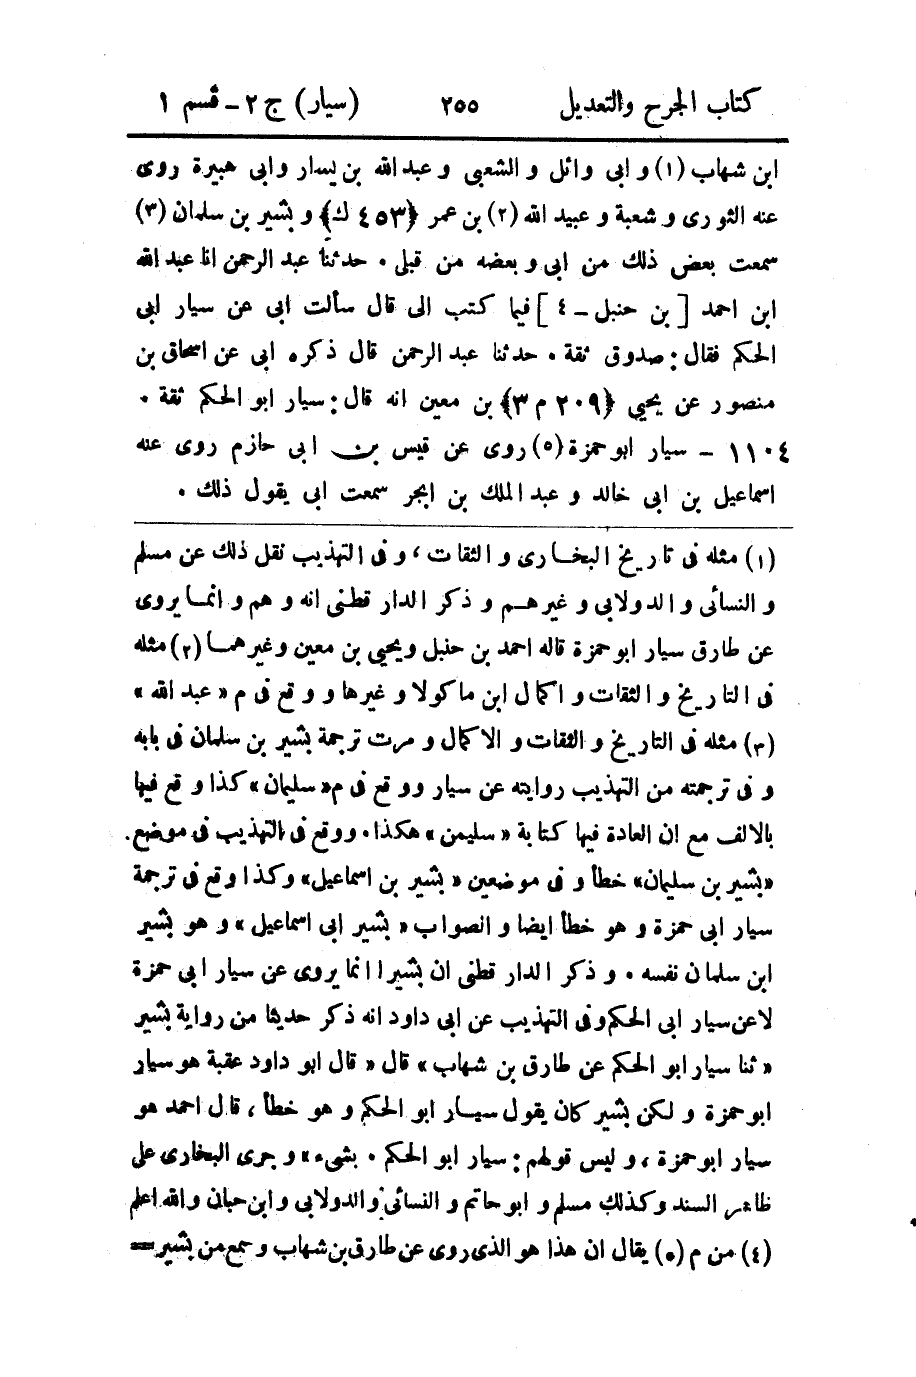 كتاب الجرح والتعديل ٢٥٥ (سيار) ج ٢ - قسم ١
ابن شهاب (١) و ابى وائل و الشعبى و عبد الله بن يسار وابى هبيرة روى
عنه الثورى و شعبة و عبيد الله (٢) بن عمر ﴿٤٥٣ ك﴾ و بشير بن سلمان (٣)
سمعت بعض ذلك من ابى و بعضه من قبلى . حدثنا عبد الرحمن انا عبد الله
ابن احمد [ بن حنبل - ٤ ] فيما كتب الى قال سألت ابى عن سيار ابى
الحكم فقال : صدوق ثقة . حدثنا عبد الرحمن قال ذكره ابى عن اسحاق بن
منصور عن يحيى ﴿٢٠٩ م ٣﴾ بن معين انه قال : سيار ابو الحكم ثقة .
١١٠٤ - سيار ابو حمزة (٥) روى عن قيس بن ابى حازم روى عنه
اسماعيل بن ابى خالد و عبد الملك بن ابجر سمعت ابى يقول ذلك .
(١) مثله فى تاريخ البخارى و الثقات ، و فى التهذيب نقل ذلك عن مسلم
و النسائى و الدولابى و غيرهم و ذكر الدار قطنى انه و هم و انما يروى
عن طارق سيار ابو حمزة قاله احمد بن حنبل ويحيى بن معين وغيرهما (٢) مثله
فى التاريخ و الثقات و اكمال ابن ماكولا و غيرها و وقع فى م « عبد الله »
(٣) مثله فى التاريخ و الثقات و الاكمال و مرت ترجمة بشير بن سلمان فى بابه
و فى ترجمته من التهذيب روايته عن سيار ووقع فى م « سليمان » كذا وقع فيها
بالالف مع ان العادة فيها كتابة « سليمن » هكذا . ووقع فى التهذيب فى موضع
« بشير بن سليمان » خطأ و فى موضعين « بشير بن اسماعيل » وكذا وقع فى ترجمة
سيار ابى حمزة و هو خطأ ايضا و الصواب « بشير ابى اسماعيل » و هو بشير
ابن سلمان نفسه . و ذكر الدار قطنى ان بشيرا انما يروى عن سيار ابى حمزة
لا عن سيار ابى الحكم وفى التهذيب عن ابى داود انه ذكر حديثا من رواية بشير
« ثنا سيار ابو الحكم عن طارق بن شهاب » قال « قال ابو داود عقبة هو سيار
ابو حمزة و لكن بشير كان يقول سيار ابو الحكم و هو خطأ ، قال احمد هو
سيار ابو حمزة ، و ليس قولهم : سيار ابو الحكم . بشىء » و جرى البخارى على
ظاهر السند وكذلك مسلم و ابو حاتم و النسائى والدولابى و ابن حبان والله اعلم
(٤) من م (٥) يقال ان هذا هو الذى روى عن طارق بن شهاب و سمع من بشير =